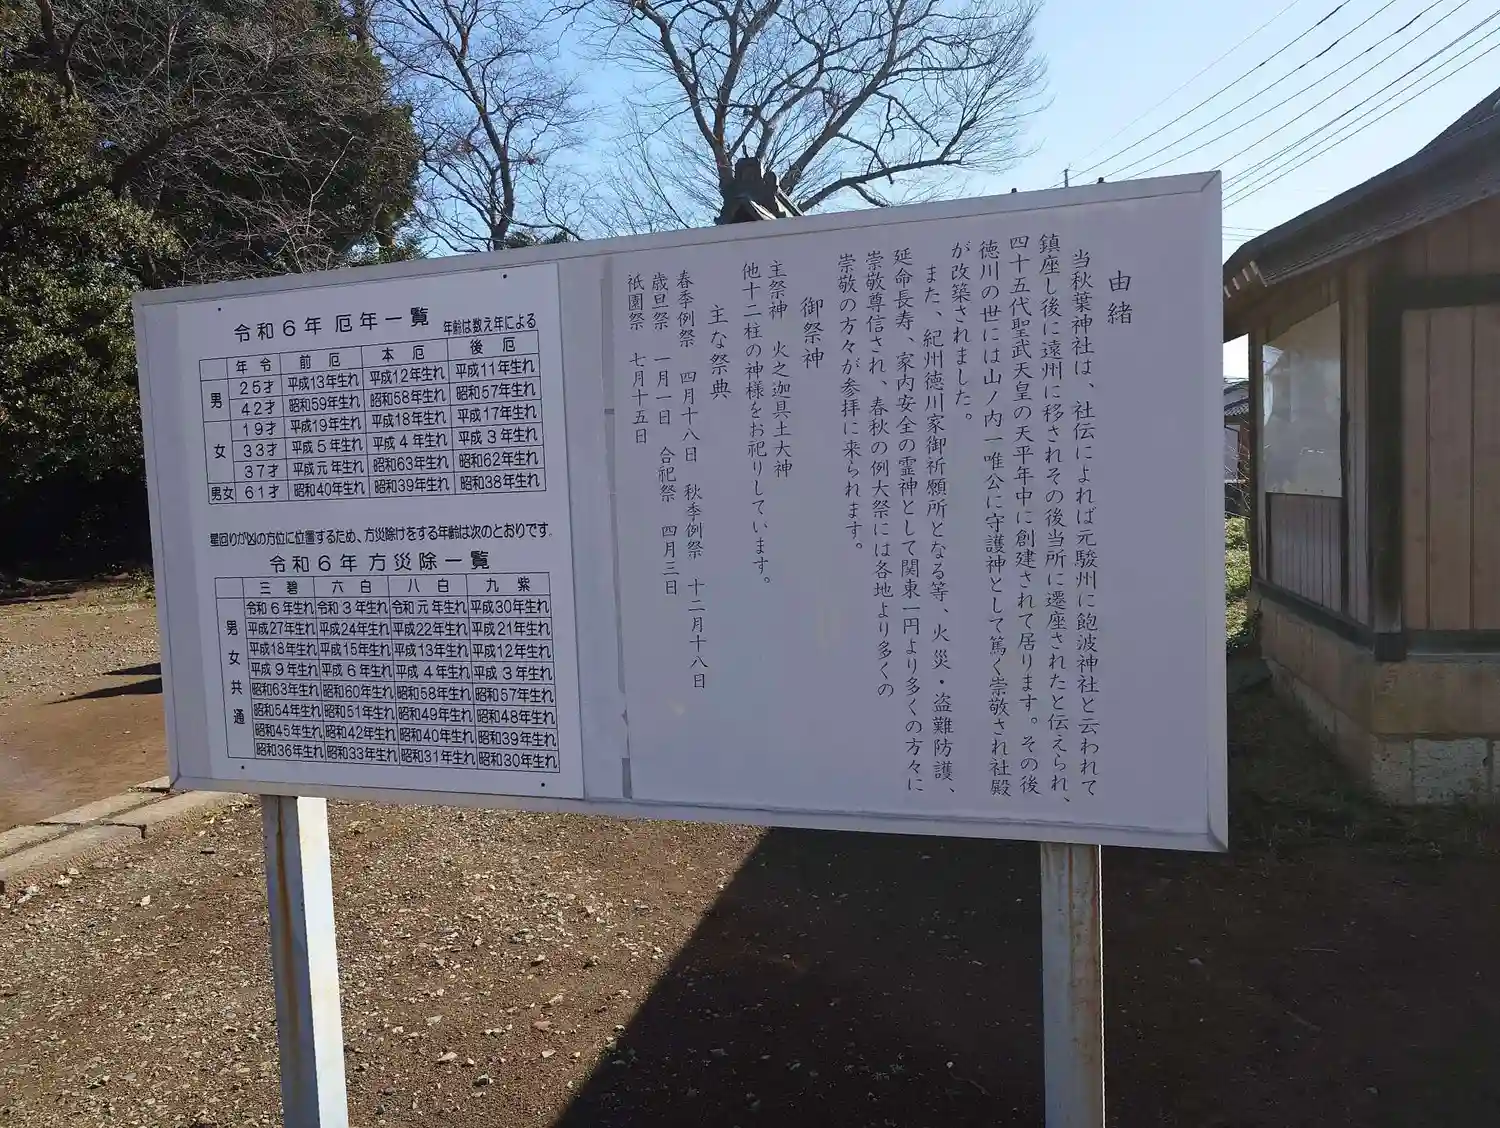 由緒
当秋葉神社は、社伝によれば元駿州に飽波神社と云われて
鎮座し後に遠州に移されその後当所に遷座されたと伝えられ、
四十五代聖武天皇の天平年中に創建されて居ります。その後
徳川の世には山ノ内一唯公に守護神として篤く崇敬され社殿
が改築されました。
また、紀州徳川家御祈願所となる等、火災・盗難防護、
延命長寿、家内安全の霊神として関東一円より多くの方々に
崇敬尊信され、春秋の例大祭には各地より多くの
崇敬の方々が参拝に来られます。
御祭神
主祭神 火之迦具土大神
他十二柱の神様をお祀りしています。
主な祭典
春季例祭 四月十八日 秋季例祭 十二月十八日
歳旦祭 一月一日 合祀祭 四月三日
祇園祭 七月十五日
令和6年 厄年一覧 年齢は数え年による
年令 前厄 本厄 後厄
男 25才 平成13年生れ 平成12年生れ 平成11年生れ
42才 昭和59年生れ 昭和58年生れ 昭和57年生れ
女 19才 平成19年生れ 平成18年生れ 平成17年生れ
33才 平成5年生れ 平成4年生れ 平成3年生れ
37才 平成元年生れ 昭和63年生れ 昭和62年生れ
男女 61才 昭和40年生れ 昭和39年生れ 昭和38年生れ
星回りが凶の方位に位置するため、方災除けをする年齢は次のとおりです。
令和6年方災除一覧
三碧 六白 八白 九紫
男女共通
令和6年生れ 令和3年生れ 令和元年生れ 平成30年生れ
平成27年生れ 平成24年生れ 平成22年生れ 平成21年生れ
平成18年生れ 平成15年生れ 平成13年生れ 平成12年生れ
平成9年生れ 平成6年生れ 平成4年生れ 平成3年生れ
昭和63年生れ 昭和60年生れ 昭和58年生れ 昭和57年生れ
昭和54年生れ 昭和51年生れ 昭和49年生れ 昭和48年生れ
昭和45年生れ 昭和42年生れ 昭和40年生れ 昭和39年生れ
昭和36年生れ 昭和33年生れ 昭和31年生れ 昭和30年生れ